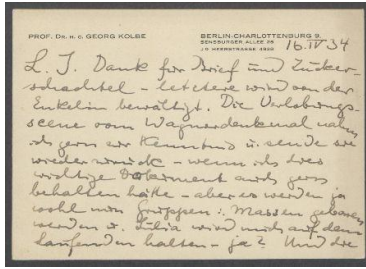 PROF. DR. H. C. GEORG KOLBE
BERLIN-CHARLOTTENBURG 9.
SENSBURGER ALLEE 25
J 9 HEERSTRASSE
16.IV 34
L. J. Dank für Brief und Zucker-
schachtel – letztere wird von der
Enkelin bewältigt. Die Verlobungs-
scene vom Wagnerdenkmal nahm
ich gern zur Kenntnis u. sende sie
wieder zurück – wenn ich dies
wichtige Dokument auch gern
behalten hätte – aber es werden ja
wohl nun Gruppen i. Massen geboren
werden u. wird mich auf dem
Laufenden halten – ja? Und die